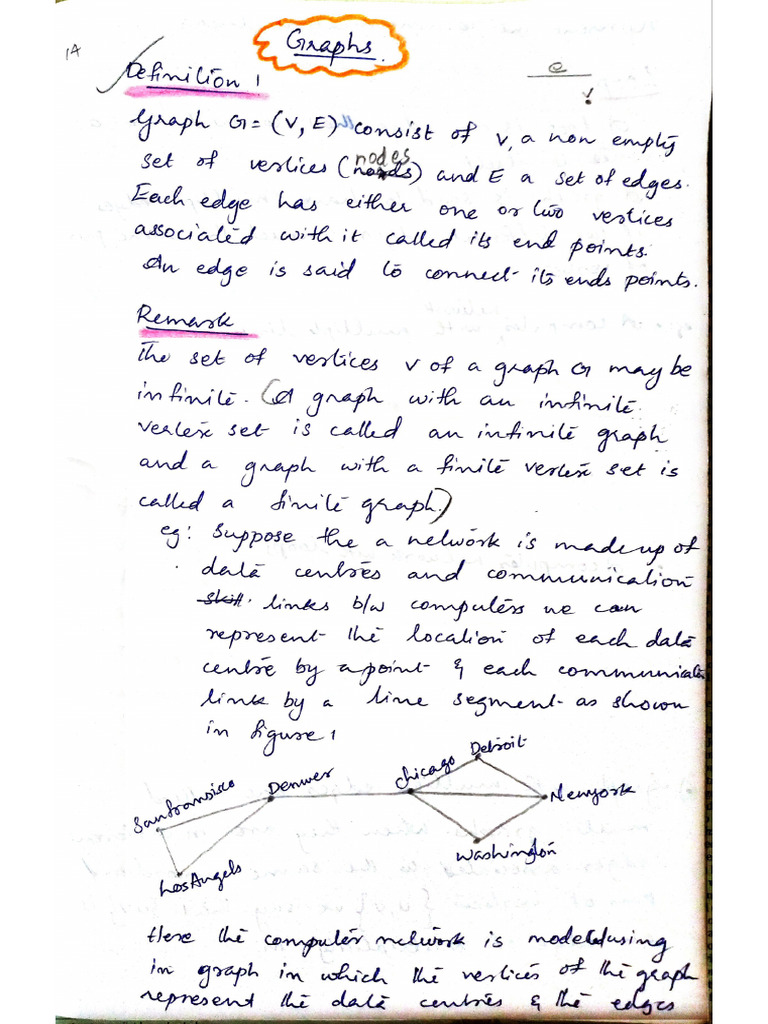 1A
Graphs.
Definition 1
e
v
Graph G = (V, E) consist of V, a non empty
set of vertices (nodes) and E a set of edges.
Each edge has either one or two vertices
associated with it called its end points.
An edge is said to connect its ends points.
Remark
The set of vertices V of a graph G may be
infinite. (A graph with an infinite
vertex set is called an infinite graph
and a graph with a finite vertex set is
called a finite graph.)
eg: Suppose the a network is made up of
data centres and communication
links b/w computers we can
represent the location of each data
centre by a point & each communication
link by a line segment as shown
in figure 1
Detroit
Chicago
Denwer
Sanfransisco
Newyork
Washington
Los Angels
Here the computer network is modeled using
in graph in which the vertices of the graph
represent the data centres & the edges